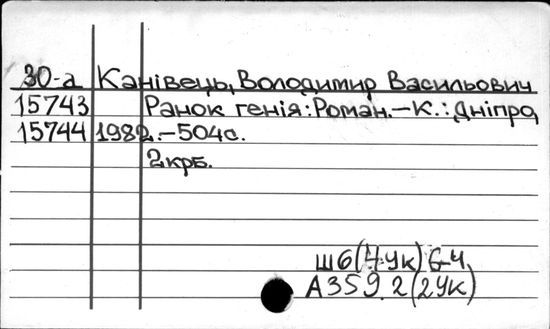 30-а Канівець, Володимир Васильович
15743 Ранок генія: Роман.—К.: Дніпро,
15744 1982.—504с.
2крб.
Ш6(4Ук)6-4
А359.2(2Ук)